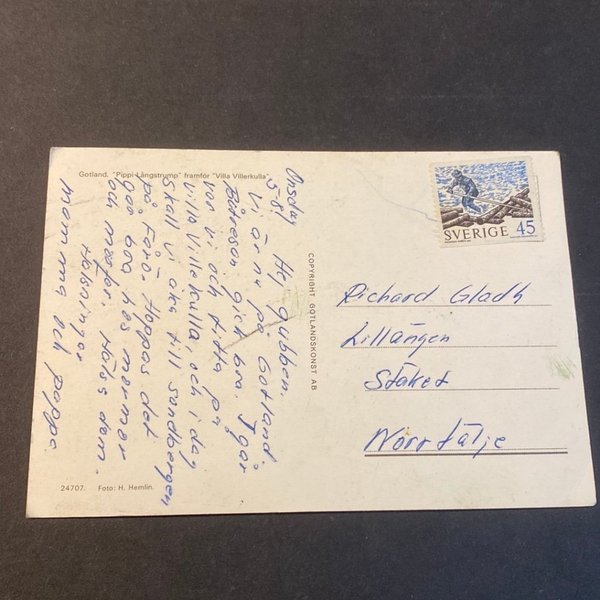 Gotland. "Pippi Långstrump" framför "Villa Villerkulla"
Onsdag
5-8!
Hej Gubben.
Vi är nu på Gotland.
Båtresan gick bra. Igår
var vi och tittade på
villa Villekulla, och i dag
skall vi åka till sundbergen
på Fårö. Hoppas det
går bra hos mormor
och morfar. Hälsa dem.
Hälsningar
mamma och pappa.
24707. Foto: H. Hemlin.
COPYRIGHT GOTLANDSKONST AB
SVERIGE 45
Richard Gladh
Lillängen
Stäket
Norrtälje